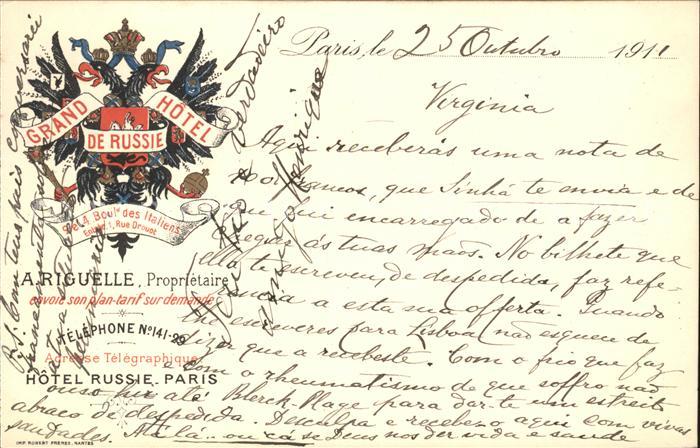 GRAND HÔTEL
DE RUSSIE
2 et 4, Boulᵈ des Italiens
Entrée, 1, Rue Drouot
A. RIGUELLE, Propriétaire
envoie son plan-tarif sur demande
TÉLÉPHONE No. 141-29
Adresse Télégraphique
HÔTEL RUSSIE. PARIS
IMP. ROBERT FRÈRES, NANTES
Paris, le 25 Outubro 1911
Virginia
Aqui receberás uma nota de
francos, que Sinhá te envia e de
que fui encarregado de a fazer
chegar ás tuas mãos. No bilhete que
ella te escreveu, de despedida, faz refe-
rencia a esta sua offerta. Quando
lhe escreveres para Lisboa não esqueças de
dizer que a recebeste. Com o frio que faz
e com o rheumatismo de que soffro não
ouso ir até Blerck-Plage para dar-te um estreito
abraço de despedida. Desculpa e recebe-o aqui com vivas
saudades. Até lá... ou cá se Deus nos der vida e saude
Do teu verdadeiro
amigo Henrique
P.S. Com teus paes conversarei